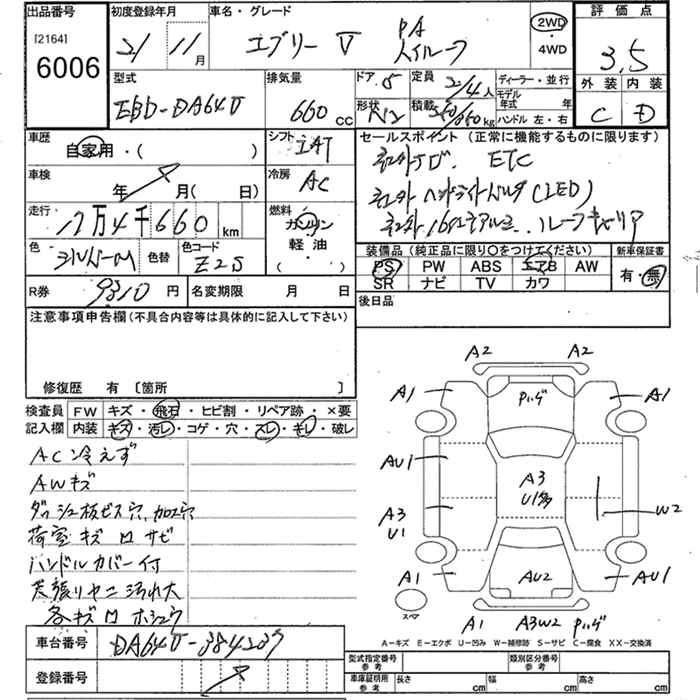 出品番号 初度登録年月 車名・グレード 評価点
[2164]
6006
21 11月 エブリーV PA ハイルーフ 2WD ・4WD 3.5
外装 内装
C D
型式 排気量 ドア 5 定員 2/4人 ディーラー・並行
EBD-DA64V 660cc モデル年式 年
形状 積載 kg ハンドル 左・右
車歴 シフト セールスポイント (正常に機能するものに限ります)
自家用・( ) IAT
ETC
車検 冷房
年 月(日) AC
(LED)
走行 燃料
17万4千660km ガソリン
軽油
( )
色 色替 色コード
シルバーM Z2S
装備品 (純正品に限り〇をつけてください) 新車保証書
PS PW ABS エアB AW 有・無
SR ナビ TV カワ
R券 9310円 名変期限 月 日
後日品
注意事項申告欄(不具合内容等は具体的に記入して下さい)
修復歴 有 〔箇所 〕
検査員 FW キズ・飛石・ヒビ割・リペア跡・×要
記入欄 内装 キズ・汚レ・コゲ・穴・スレ・キレ・破レ
AC冷えず
AWキズ
ダッシュ板ビス穴、加工穴
荷室キズロサビ
ハンドルカバー付
天張リヤニ汚れ大
各キズロホシュウ
A2 A2
A1 A1
AU1 A3
U1多
A3 U1 W2
A1 AU2 AU1
スペア
A1 A3W2
A-キズ E-エクボ U-凹み W-補修跡 S-サビ C-腐食 XX-交換済
車台番号 DA64V-384237
登録番号
型式指定番号 参考 類別区分番号 参考
車庫証明用 参考 長さ cm 幅 cm 高さ cm